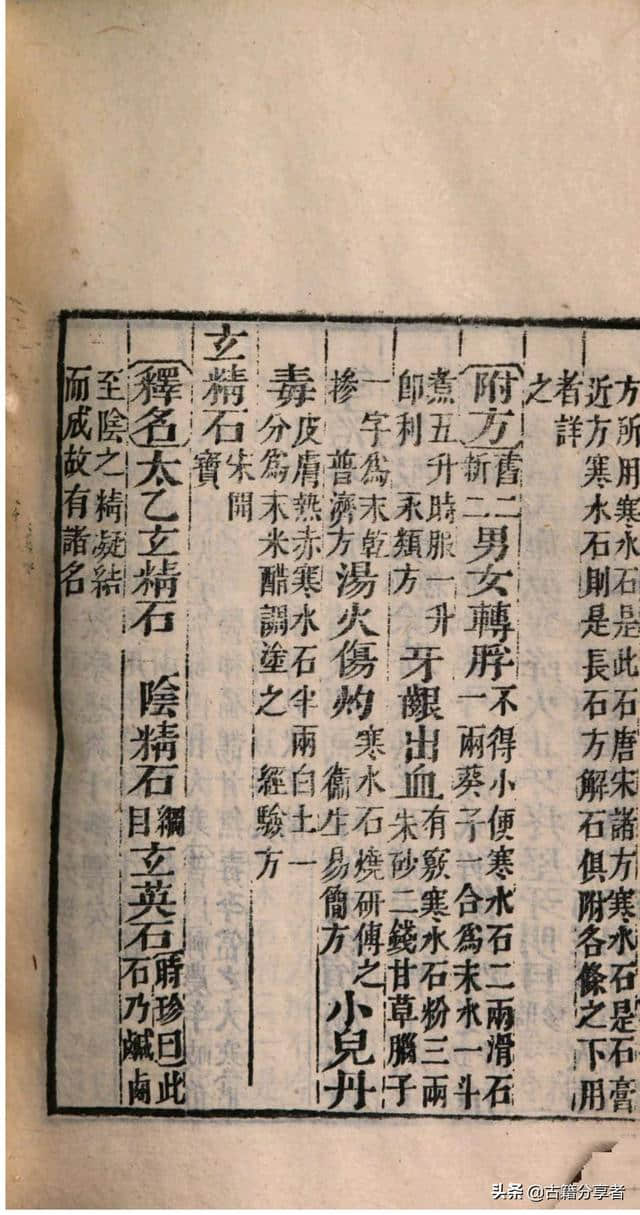 方所用寒水石是此石唐宋諸方寒水石是石膏
近方寒水石則是長石方解石俱附各條之下用
者詳
之
附方舊二新二男女轉脬不得小便寒水石二兩滑石一兩葵子一合爲末水一斗
煮五升時服一升卽利永類方牙齦出血有竅寒水石粉三兩朱砂二錢甘草腦子
一字爲末乾摻普濟方湯火傷灼寒水石燒研傅之衞生易簡方小兒丹
毒皮膚熱赤寒水石半兩白土一分爲末米醋調塗之經驗方
玄精石宋開寶
釋名太乙玄精石陰精石綱目玄英石時珍曰此石乃鹹鹵
至陰之精凝結而成故有諸名
头条 @古籍分享者